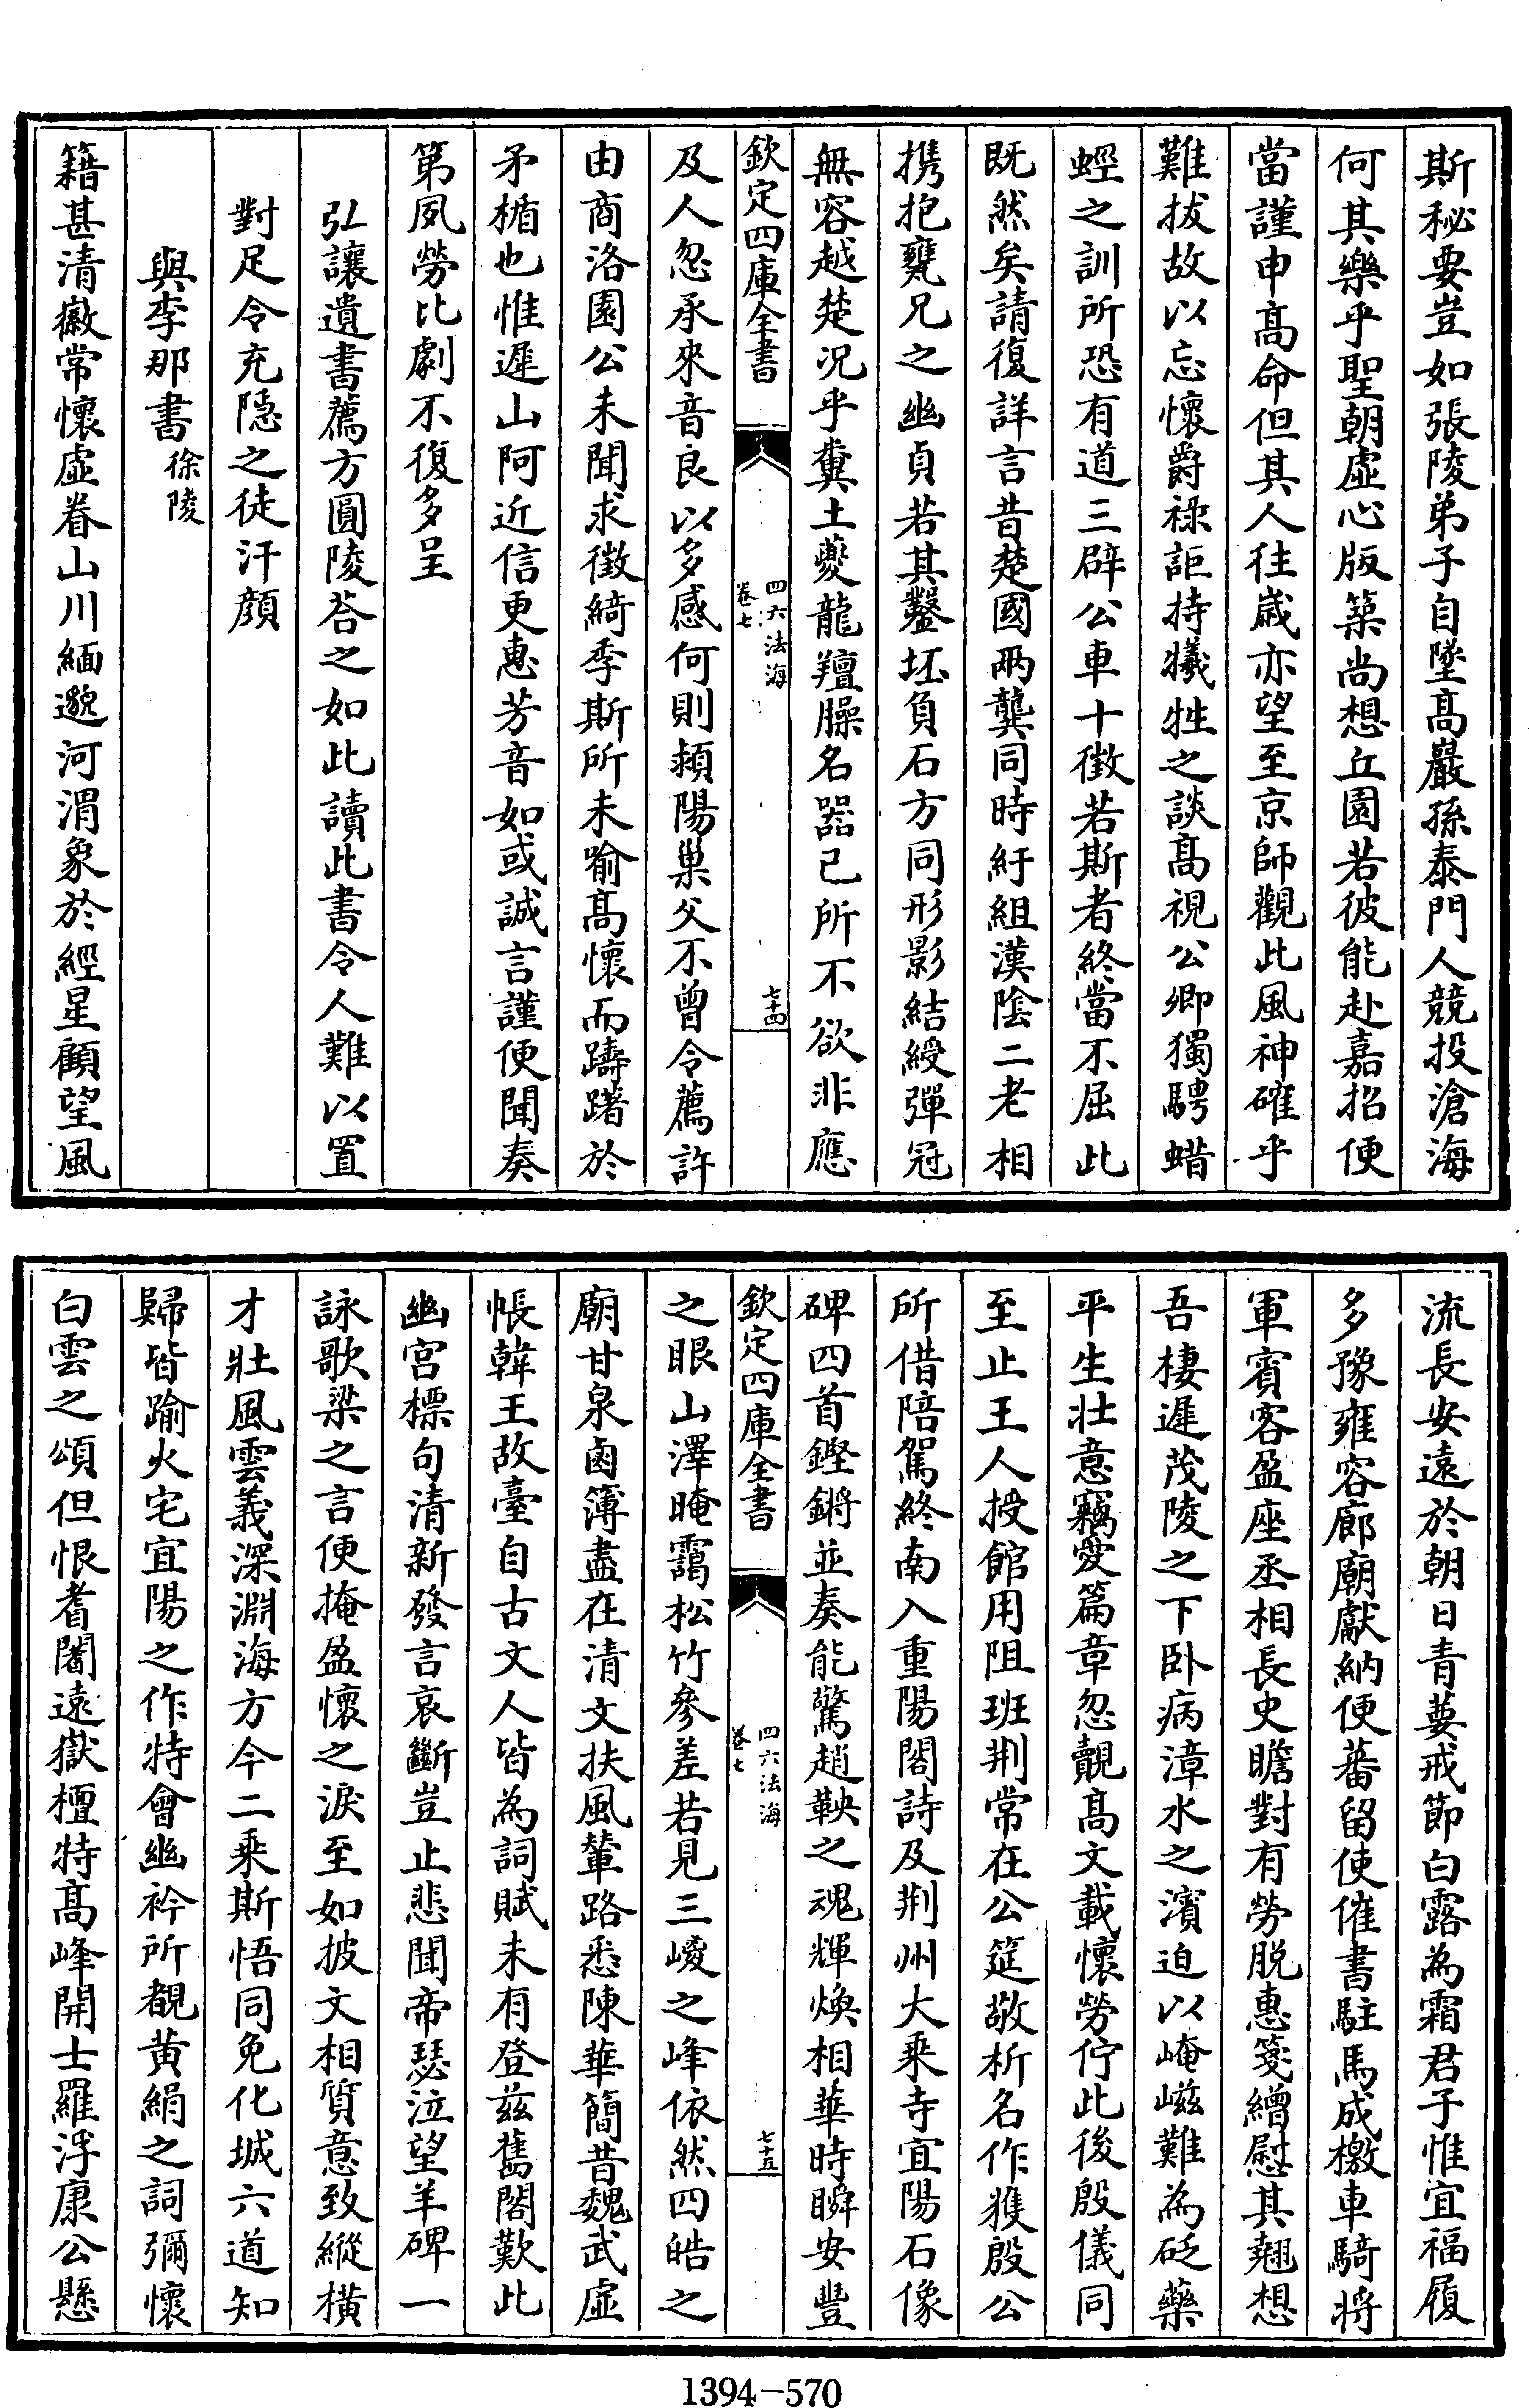 斯秘要豈如張陵弟子自墜高巖孫泰門人競投滄海
何其樂乎聖朝虛心版築尚想丘園若彼能赴嘉招便
當謹申高命但其人往嵗亦望至京師觀此風神確乎
難拔故以忘懷爵祿詎持犧牲之談高視公卿獨騁蜡
蛵之訓所恐有道三辟公車十徵若斯者終當不屈此
既然矣請復詳言昔楚國兩龔同時紆組漢陰二老相
携抱甕兄之幽貞若其鑿坯負石方同形影結綬彈冠
無容越楚况乎糞土夔龍羶臊名器已所不欲非應
欽定四庫全書
四六法海
卷七
七十四
及人忽承來音良以多感何則潁陽巢父不曾令薦許
由商洛園公未聞求徵綺季斯所未喻高懷而躊躇於
矛楯也惟遲山阿近信更惠芳音如或誠言謹便聞奏
第夙勞比劇不復多呈
弘讓遺書薦方圓陵荅之如此讀此書令人難以置
對足令充隠之徒汗顔
與李那書徐陵
籍甚清徽常懷虛眷山川緬邈河渭象於經星顧望風
流長安遠於朝日青蔞戒節白露為霜君子惟宜福履
多豫雍容廊廟獻納便蕃留使催書駐馬成檄車騎將
軍賓客盈座丞相長史瞻對有勞脱惠箋繒慰其翹想
吾棲遲茂陵之下卧病漳水之濱迫以崦嵫難為砭藥
平生壯意竊愛篇章忽覿高文載懷勞佇此後殷儀同
至止王人授館用阻班荆常在公筵敬析名作獲殷公
所借陪駕終南入重陽閣詩及荆州大乘寺宜陽石像
碑四首鏗鏘並奏能驚趙鞅之魂輝煥相華時瞬安豐
欽定四庫全書
四六法海
卷七
七十五
之眼山澤晻靄松竹參差若見三嵕之峰依然四皓之
廟甘泉鹵簿盡在清文扶風輦路悉陳華簡昔魏武虛
帳韓王故臺自古文人皆為詞賦未有登兹舊閣歎此
幽宫標句清新發言哀斷豈止悲聞帝瑟泣望羊碑一
詠歌梁之言便掩盈懷之淚至如披文相質意致縱横
才壯風雲義深淵海方今二乘斯悟同免化城六道知
歸皆踰火宅宜陽之作特會幽衿所覩黄絹之詞彌懷
白雲之頌但恨耆闍遠嶽檀特高峰開士羅浮康公懸
1394-570